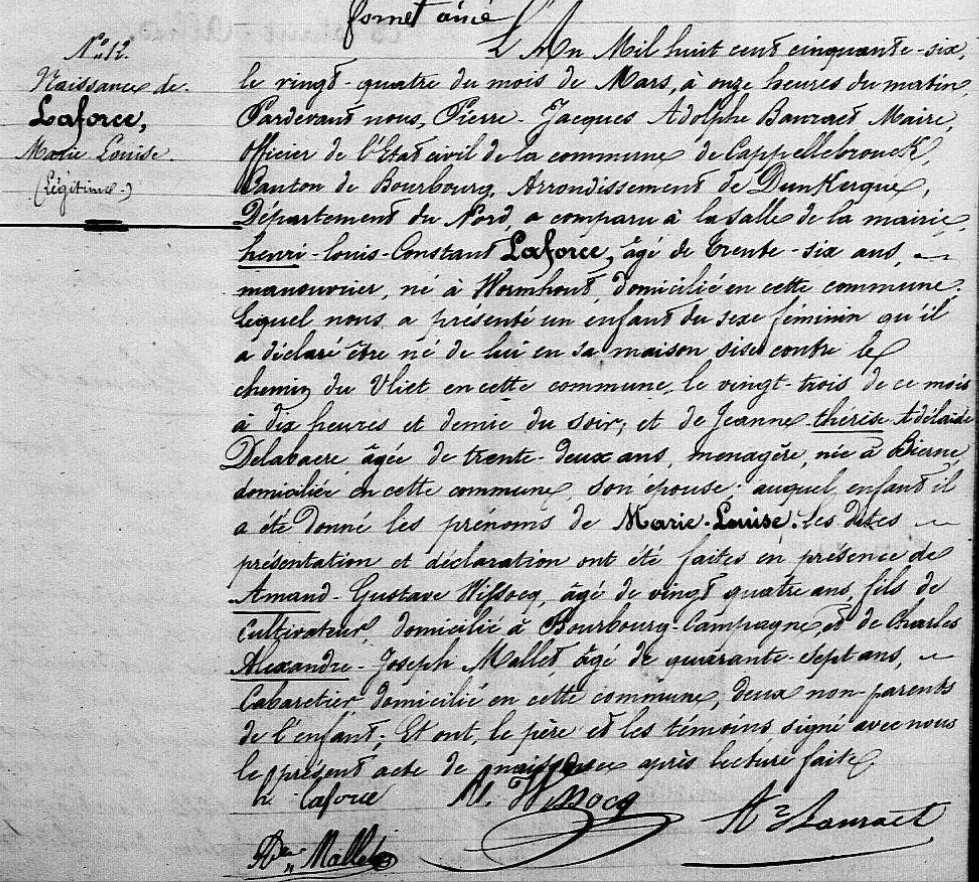 fornet ainé
N° 12.
Naissance de
Laforce,
Marie Louise.
(Légitime)
L'An Mil huit cent cinquante-six,
le vingt-quatre du mois de Mars, à onze heures du matin,
Pardevant nous, Pierre-Jacques Adolphe Maire,
officier de l'Etat civil de la commune de Cappellebrouck,
Canton de Bourbourg, Arrondissement de Dunkerque,
Département du Nord, a comparu à la salle de la mairie,
henri-louis-Constant Laforce, âgé de trente-six ans,
manouvrier, né à Wormhout, domicilié en cette commune,
lequel nous a présenté un enfant du sexe féminin qu'il
a déclaré être né de lui en sa maison sise contre le
chemin du Vliet en cette commune, le vingt-trois de ce mois
à dix heures et demie du soir, et de Jeanne thérèse Adélaïde
Delabaere, âgée de trente-deux ans, menagère, née à Bierne
domiciliée en cette commune, son épouse; auquel enfant il
a été donné les prénoms de Marie-Louise. Les dites
présentation et déclaration ont été faites en présence de
Amand-Gustave Wissocq, âgé de vingt quatre ans, fils de
Cultivateur, domicilié à Bourbourg-Campagne, et de Charles
Alexandre-Joseph Mallet, âgé de quarante-sept ans,
Cabaretier, domicilié en cette commune, deux non-parents
de l'enfant; Et ont, le père et les témoins signé avec nous
le présent acte de naissance après lecture faite.
h Laforce A. Wissocq
Mallet